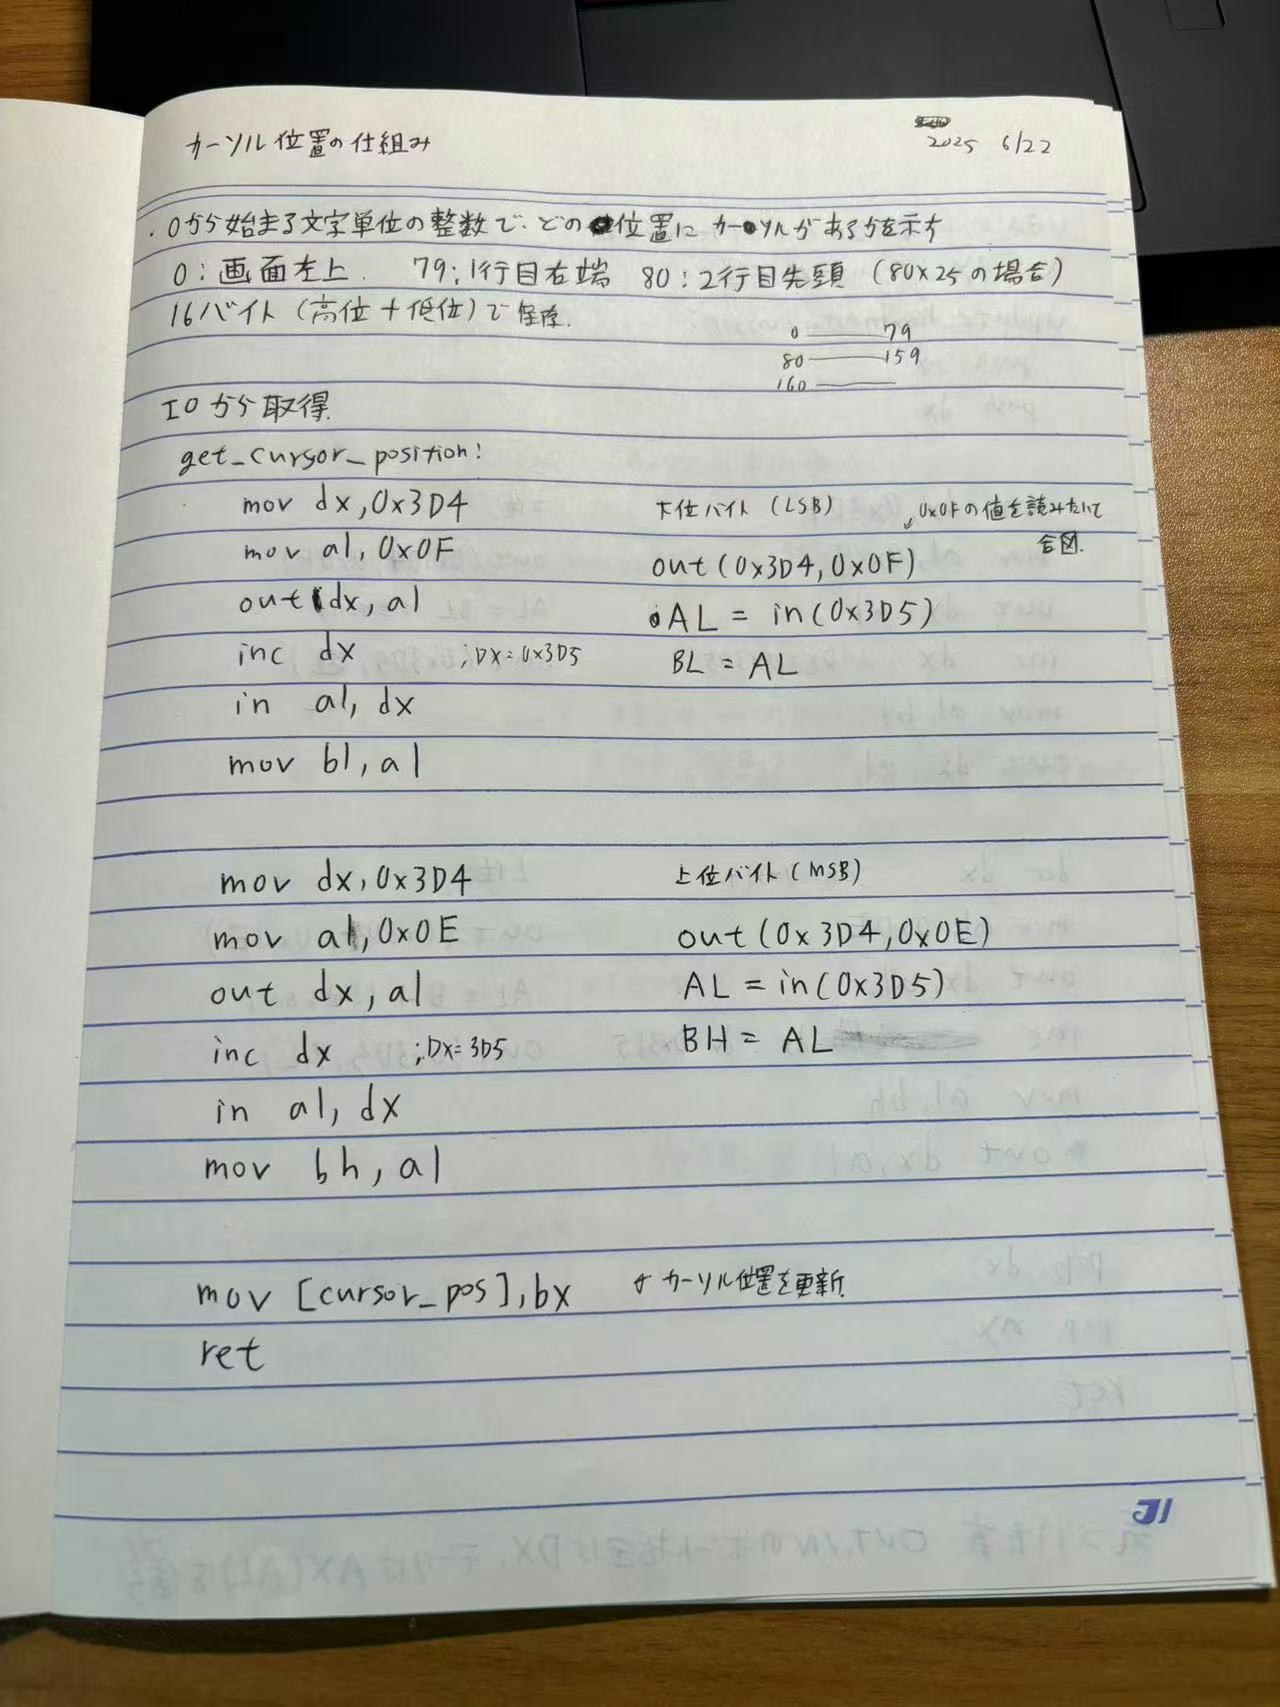 カーソル位置の仕組み
2025 6/22
・0から始まる文字単位の整数で、どの位置にカーソルがあるかを示す
0：画面左上. 79：1行目右端 80：2行目先頭 (80x25の場合)
16バイト (高位+低位)で保存.
0 79
80 159
160
IOから取得
get_cursor_position:
mov dx,0x3D4 下位バイト (LSB) ↙0x0Fの値を読みたいて
mov al, 0x0F 合図.
out(0x3D4, 0x0F)
out dx, al AL = in(0x3D5)
inc dx ;DX=0x3D5 BL = AL
in al, dx
mov bl, al
mov dx,0x3D4 上位バイト (MSB)
mov al,0x0E out(0x3D4,0x0E)
out dx, al AL = in(0x3D5)
inc dx ;DX=3D5 BH = AL
in al, dx
mov bh, al
mov [cursor_pos],bx カーソル位置を更新
ret